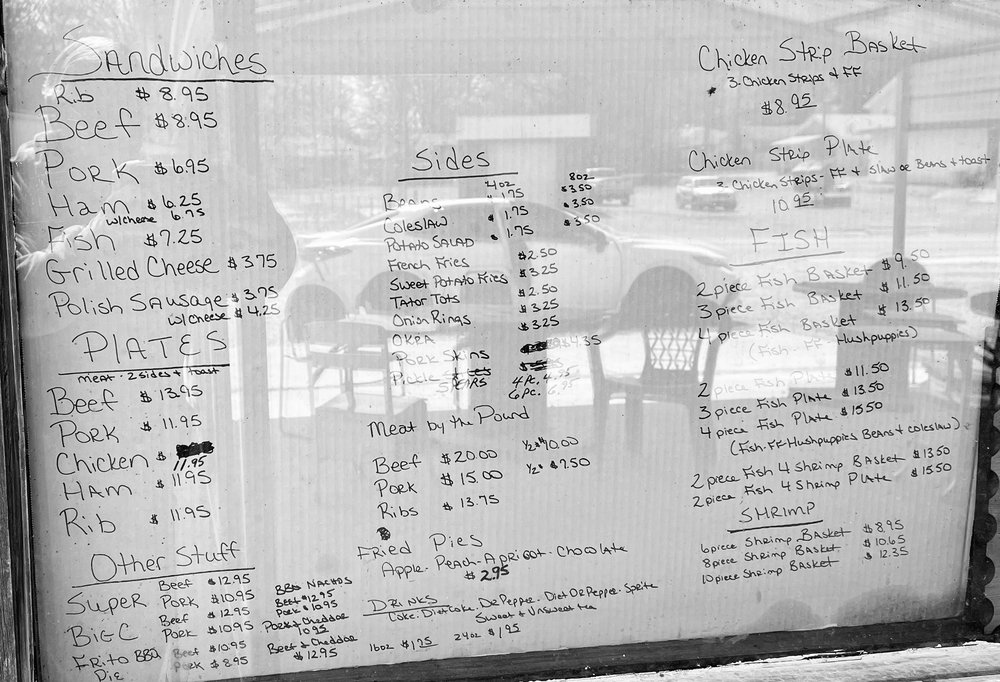 Sandwiches
Rib $8.95
Beef $8.95
Pork $6.95
Ham $6.25
w/cheese 6.75
Fish $7.25
Grilled Cheese $3.75
Polish Sausage $3.75
w/cheese $4.25
PLATES
meat - 2 sides + toast
Beef $13.95
Pork $11.95
Chicken $
11.95
Ham $11.95
Rib $11.95
Other Stuff
Super Beef $12.95
Pork $10.95
Big C Beef $12.95
Pork $10.95
Frito BBQ Beef $10.95
Pie Pork $8.95
BBQ Nachos
Beef $12.95
Pork $10.95
Pork & Cheddar
10.95
Beef & Cheddar
$12.95
Sides
4oz 8oz
Beans $1.75 $3.50
Coleslaw $1.75 $3.50
Potato Salad $1.75 $3.50
French Fries $2.50
Sweet Potato Fries $3.25
Tator Tots $2.50
Onion Rings $3.25
OKRA $3.25
Pork Skins $4.35
Pickle
4 Pc.
6 Pc. 6.95
Meat by the Pound
Beef $20.00 1/2# $10.00
Pork $15.00 1/2# $7.50
Ribs $13.75
Fried Pies
Apple - Peach - Apricot - Chocolate
$2.95
DRINKS
Coke, Diet Coke, DR Pepper, Diet DR Pepper, Sprite
Sweet & Unsweet tea
16oz $1.75 24oz $1.95
Chicken Strip Basket
3 - Chicken Strips & FF
$8.95
Chicken Strip Plate
3 Chicken Strips - FF + Slaw or Beans + toast
10.95
FISH
2 piece Fish Basket $9.50
3 piece Fish Basket $11.50
4 piece Fish Basket $13.50
(Fish - FF - Hushpuppies)
2 piece Fish Plate $11.50
3 piece Fish Plate $13.50
4 piece Fish Plate $15.50
(Fish-FF-Hushpuppies Beans & coleslaw)
2 piece Fish 4 Shrimp Basket $13.50
2 piece Fish 4 Shrimp Plate $15.50
SHRIMP
6 piece Shrimp Basket $8.95
8 piece Shrimp Basket $10.65
10 piece Shrimp Basket $12.35